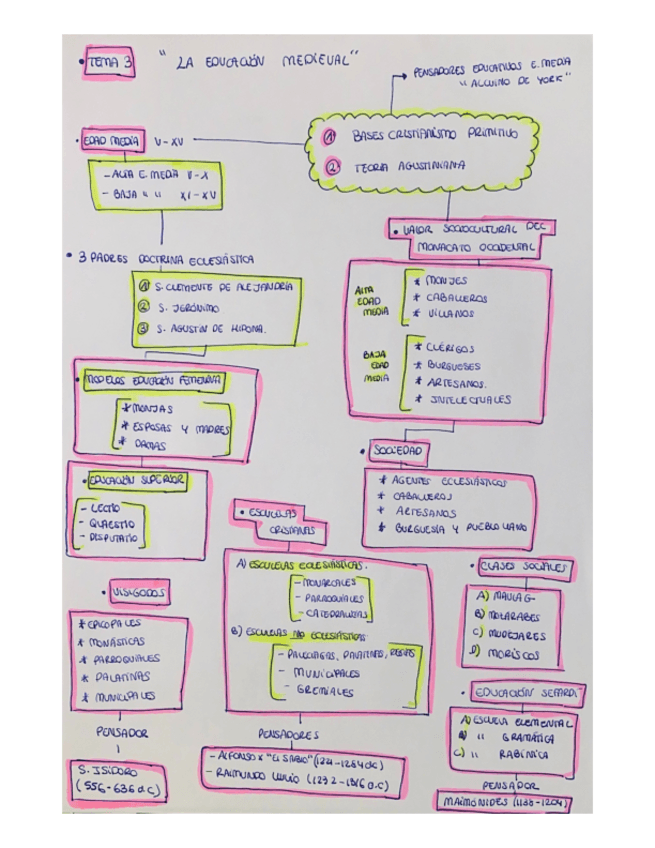 • TEMA 3 "LA EDUCACIÓN MEDIEVAL"
PENSADORES EDUCATIVOS E. MEDIA
"ALCUINO DE YORK"
• EDAD MEDIA V-XV
- ALTA E. MEDIA V-X
- BAJA " " XI-XV
① BASES CRISTIANISMO PRIMITIVO
② TEORIA AGUSTINIANA
• VALOR SOCIOCULTURAL DEL
MONACATO OCCIDENTAL
• 3 PADRES DOCTRINA ECLESIÁSTICA
① S. CLEMENTE DE ALEJANDRÍA
② S. JERÓNIMO
③ S. AGUSTÍN DE HIPONA.
ALTA
EDAD
MEDIA
* MONJES
* CABALLEROS
* VILLANOS
BAJA
EDAD
MEDIA
* CLÉRIGOS
* BURGUESES
* ARTESANOS.
* INTELECTUALES
• MODELOS EDUCACIÓN FEMENINA
* MONJAS
* ESPOSAS Y MADRES
* DAMAS
• EDUCACIÓN SUPERIOR
- LECTIO
- QUAESTIO
- DISPUTATIO
• SOCIEDAD
* AGENTES ECLESIÁSTICOS
* CABALLEROS
* ARTESANOS
* BURGUESÍA Y PUEBLO LLANO
• ESCUELAS
CRISTIANAS
A) ESCUELAS ECLESIÁSTICAS.
- MONACALES
- PARROQUIALES
- CATEDRALICIAS
B) ESCUELAS NO ECLESIÁSTICAS
- PALECIEGAS,
- MUNICIPALES
- GREMIALES
PENSADORES
- ALFONSO X "EL SABIO" (1221-1284 dC)
- RAIMUNDO LULIO (1232-1316 d.C)
• VISIGODOS
* EPICOPALES
* MONÁSTICAS
* PARROQUIALES
* PALATINAS
* MUNICIPALES
PENSADOR
S. ISIDORO
(556-636 d.C)
• CLASES SOCIALES
A)
B) MOZARABES
C) MUDEJARES
D) MORISCOS
• EDUCACIÓN SEFARDÍ
A) ESCUELA ELEMENTAL
B) " GRAMÁTICA
C) " RABÍNICA
PENSADOR
MAIMÓNIDES (1138-1204)